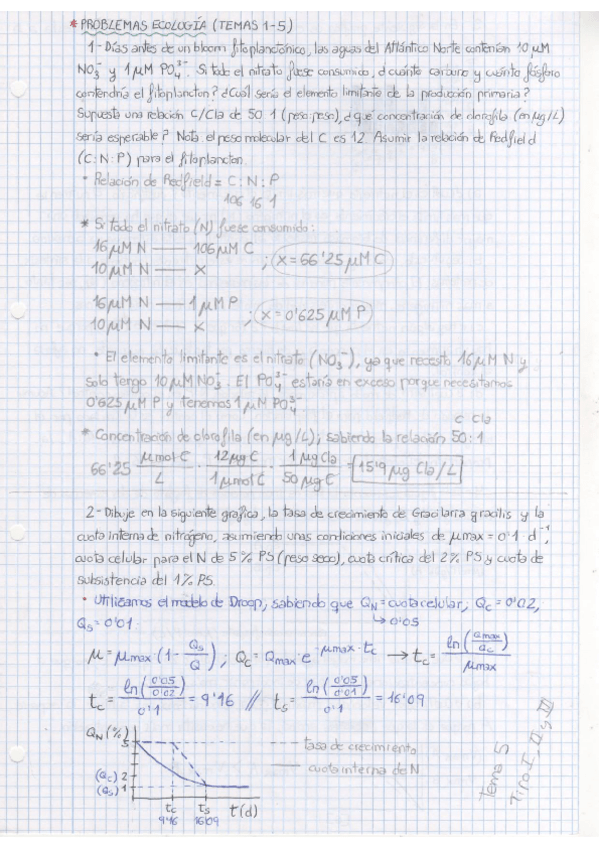 * PROBLEMAS ECOLOGÍA (TEMAS 1-5)
1-Días antes de un bloom fitoplanctónico, las aguas del Atlántico Norte contenían 10 μM
NO₃⁻ y 1 μM PO₄³⁻. Si todo el nitrato fuese consumido, ¿cuánto carbono y cuánto fósforo
contendría el fitoplancton? ¿Cuál sería el elemento limitante de la producción primaria?
Supuesta una relación C/Cla de 50:1 (peso:peso), ¿qué concentración de clorofila (en μg/L)
sería esperable? Nota: el peso molecular del C es 12. Asumir la relación de Redfield
(C:N:P) para el fitoplancton.
• Relación de Redfield = C : N : P
106 16 1
* Si todo el nitrato (N) fuese consumido:
16 μM N —— 106 μM C
10 μM N —— x ; x = 66'25 μM C
16 μM N —— 1 μM P
10 μM N —— x ; x = 0'625 μM P
• El elemento limitante es el nitrato (NO₃⁻), ya que necesito 16 μM N y
solo tengo 10 μM NO₃⁻. El PO₄³⁻ estaría en exceso porque necesitamos
0'625 μM P y tenemos 1 μM PO₄³⁻
C Cla
* Concentración de clorofila (en μg/L); sabiendo la relación 50:1
66'25 μmol C / L · 12 μg C / 1 μmol C · 1 μg Cla / 50 μg C = 15'9 μg Cla/L
2-Dibuje en la siguiente gráfica, la tasa de crecimiento de Gracilaria gracilis y la
cuota interna de nitrógeno, asumiendo unas condiciones iniciales de μmax = 0'1 · d⁻¹,
cuota celular para el N de 5% PS (peso seco), cuota crítica del 2% PS y cuota de
subsistencia del 1% PS.
• Utilizamos el modelo de Droop, sabiendo que Q_N = cuota celular, Q_C = 0'02,
↳ 0'05
Q_S = 0'01
μ = μmax · (1 - Q_S/Q) ; Q_C = Qmax · e^(-μmax · t_C) → t_C = ln(Qmax/Q_C) / μmax
t_C = ln(0'05/0'02) / 0'1 = 9'16 // t_S = ln(0'05/0'01) / 0'1 = 16'09
Q_N (%)
5
(Q_C) 2
(Q_S) 1
t_C t_S t(d)
9'16 16'09
--- tasa de crecimiento
— cuota interna de N
Tema 5
Tipo I, II y III